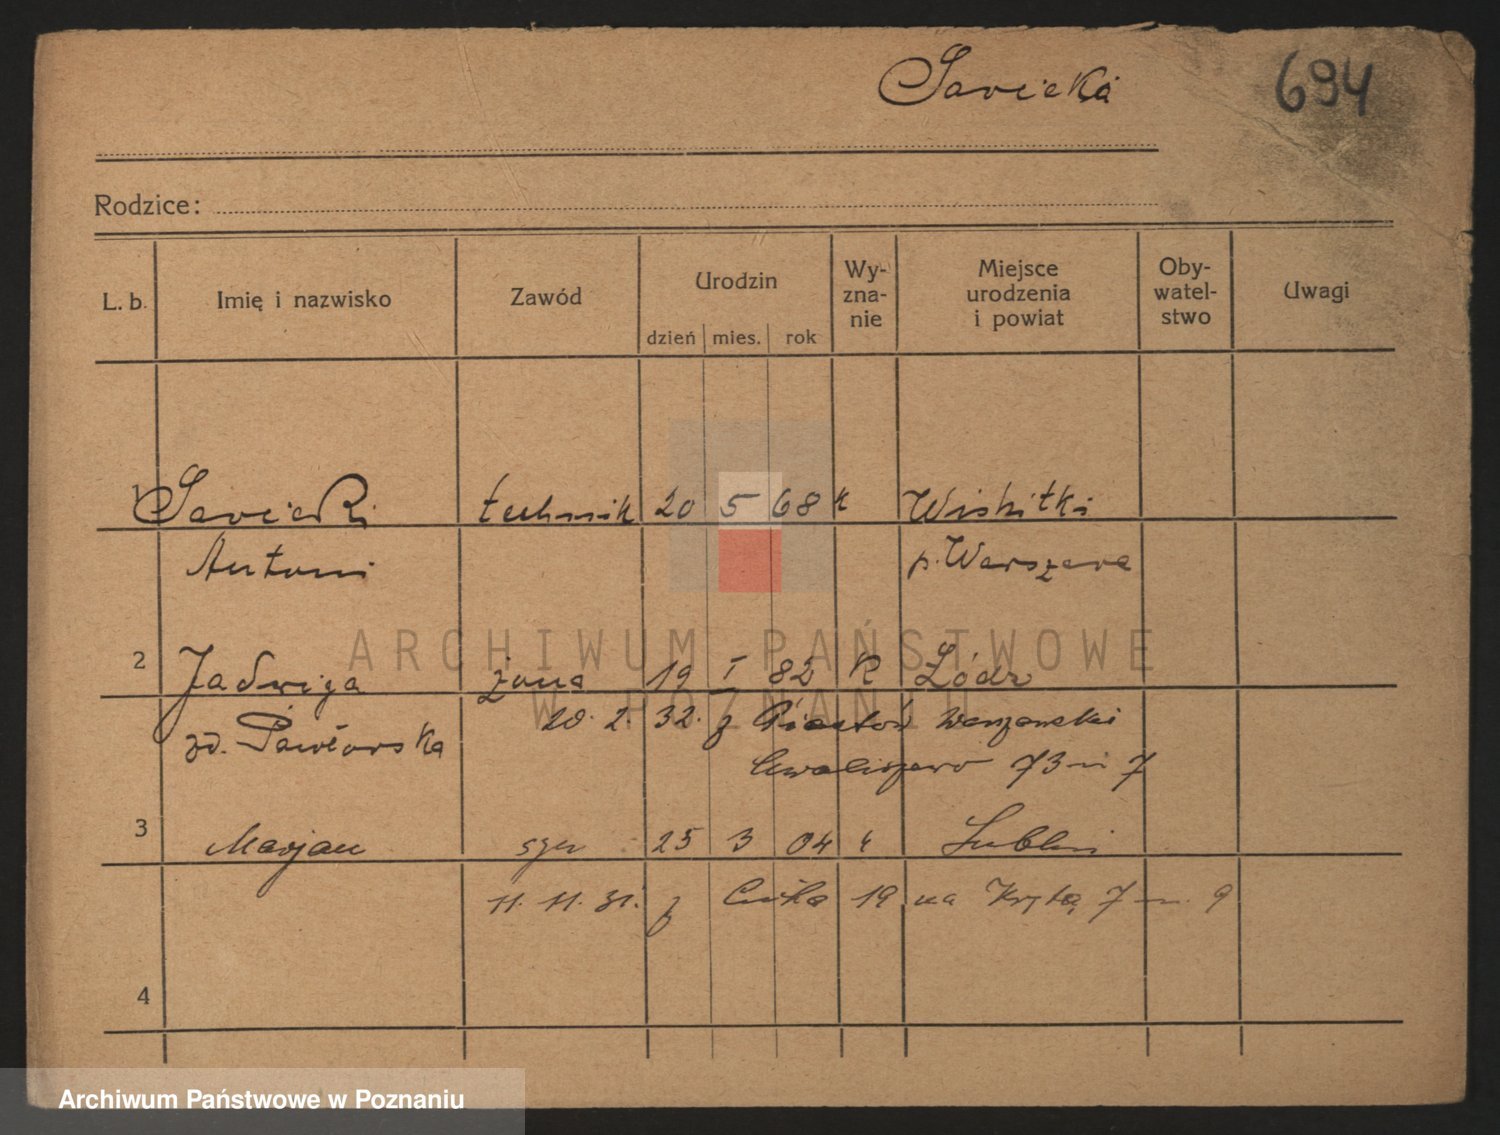 Savicka
694
Rodzice:
L. b. Imię i nazwisko Zawód Urodzin dzień mies. rok Wy-zna-nie Miejsce urodzenia i powiat Oby-watel-stwo Uwagi
1 Savicki technik 20 5 68 k Wiskitki
Antoni p. Warszawa
ARCHIWUM PAŃSTWOWE
W POZNANIU
2 Jadwiga żona 19 I 82 k Łódź
zd. Pawłowska 20. 2. 32. z
73 m 7
3 Marjan 25 3 04 k Lublin
11. 11. 31. z 19 na 7 m. 9
4
Archiwum Państwowe w Poznaniu